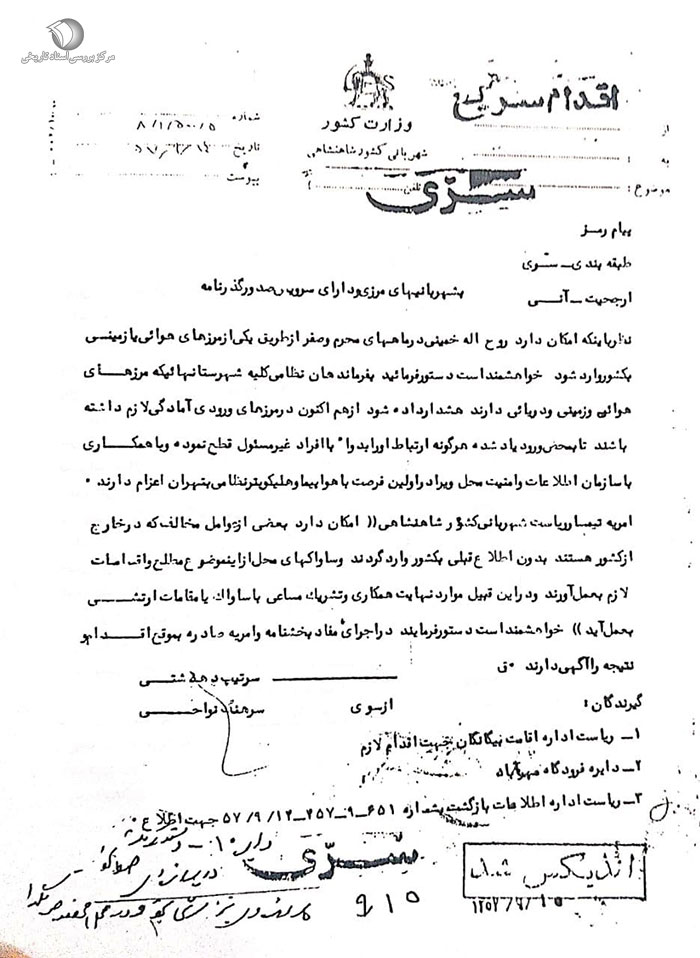 مرکز بررسی اسناد تاریخی
اقدام سریع
وزارت کشور
شهربانی کشور شاهنشاهی
از
به :
موضوع :
تلفن
شماره ۸/۱/۵۰۰/۵
تاریخ
پیوست
سرّی
پیام رمز
طبقه بندی ـ سّری
ارجحیت ـ آنی
بشهربانیهای مرزی و دارای سرویس صدور گذرنامه
نظر باینکه امکان دارد روح اله خمینی در ماههای محرم و صفر از طریق یکی از مرزهای هوائی یا زمینی
بکشور وارد شود خواهشمند است دستور فرمائید بفرماندهان نظامی کلیه شهرستانهائیکه مرزهای
هوائی وزمینی ودریائی دارند هشدار داده شود از هم اکنون در مرزهای ورودی آمادگی لازم داشته
باشند تا بمحض ورود یاد شده هرگونه ارتباط اورا بدوا" با افراد غیر مسئول قطع نموده و با همکاری
با سازمان اطلاعات وامنیت محل ویرا در اولین فرصت با هواپیما و هلیکوپتر نظامی بتهران اعزام دارند ۰
امریه تیمسار ریاست شهربانی کشور شاهنشاهی (( امکان دارد بعضی از عوامل مخالف که در خارج
از کشور هستند بدون اطلاع قبلی بکشور وارد گردند وساواکهای محل از این موضوع مطلع واقدامات
لازم بعمل آورند ودر این قبیل موارد نهایت همکاری وتشریک مساعی با ساواک یا مقامات ارتشی
بعمل آید )) خواهشمند است دستور فرمایند در اجرای مفاد بخشنامه وامریه صادره بموقع اقدام و
نتیجه را آگهی دارند ۰ ق
سرتیپ دهشتی
گیرندگان :
از سوی
سرهنگ نواحی
۱ـ ریاست اداره اقامت بیگانگان جهت اقدام لازم
۲ـ دایره فرودگاه مهرآباد
۳ـ ریاست اداره اطلاعات بازگشت بشماره ۶۵۱ـ۹ـ۲۵۷ـ ۵۷/۹/۱۲ جهت اطلاع ۰
سرّی
۹۱۵
اندیکس شد